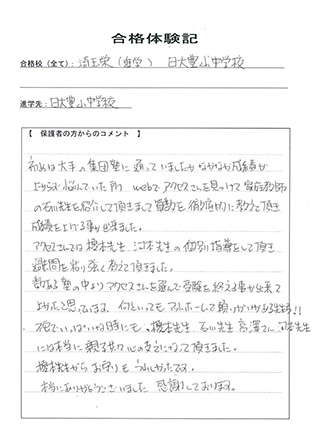 合格体験記
合格校（全て）：埼玉栄（進学） 日大豊山中学校
進学先：日大豊山中学校
【 保護者の方からのコメント 】
初めは大手の集団塾に通っていましたがなかなか成績が
上がらず悩んでいた所 webでアクセスさんを見つけて家庭教師
の石川先生を紹介して頂きまして算数を徹底的に教えて頂き
成績を上げる事が出来ました。
アクセスさんでは橋本先生 河本先生の個別指導をして頂き
難問を粘り強く教えて頂きました。
数ある塾の中よりアクセスさんを選んで受験を終える事が出来て
よかったと思っています。何といってもアットホームで頼りがいがある先生方!!
不安でいっぱいな時にも、橋本先生 石川先生 高澤さん 河本先生
には本当に親子共々心の支えになって頂きました。
橋本先生からのお守りもうれしかったです。
本当にありがとうございました 感謝しております。